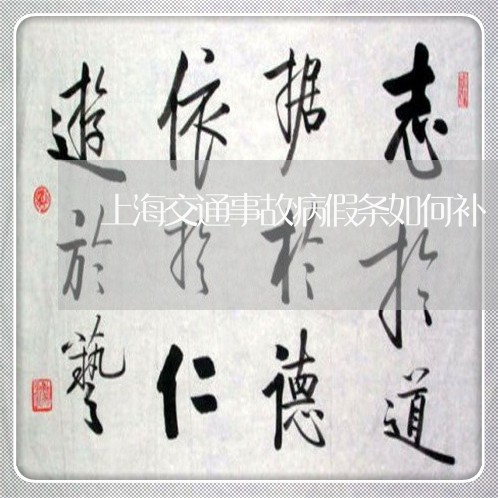 志於道
据於德
依於仁
遊於藝
上海交通事故病假条如何补